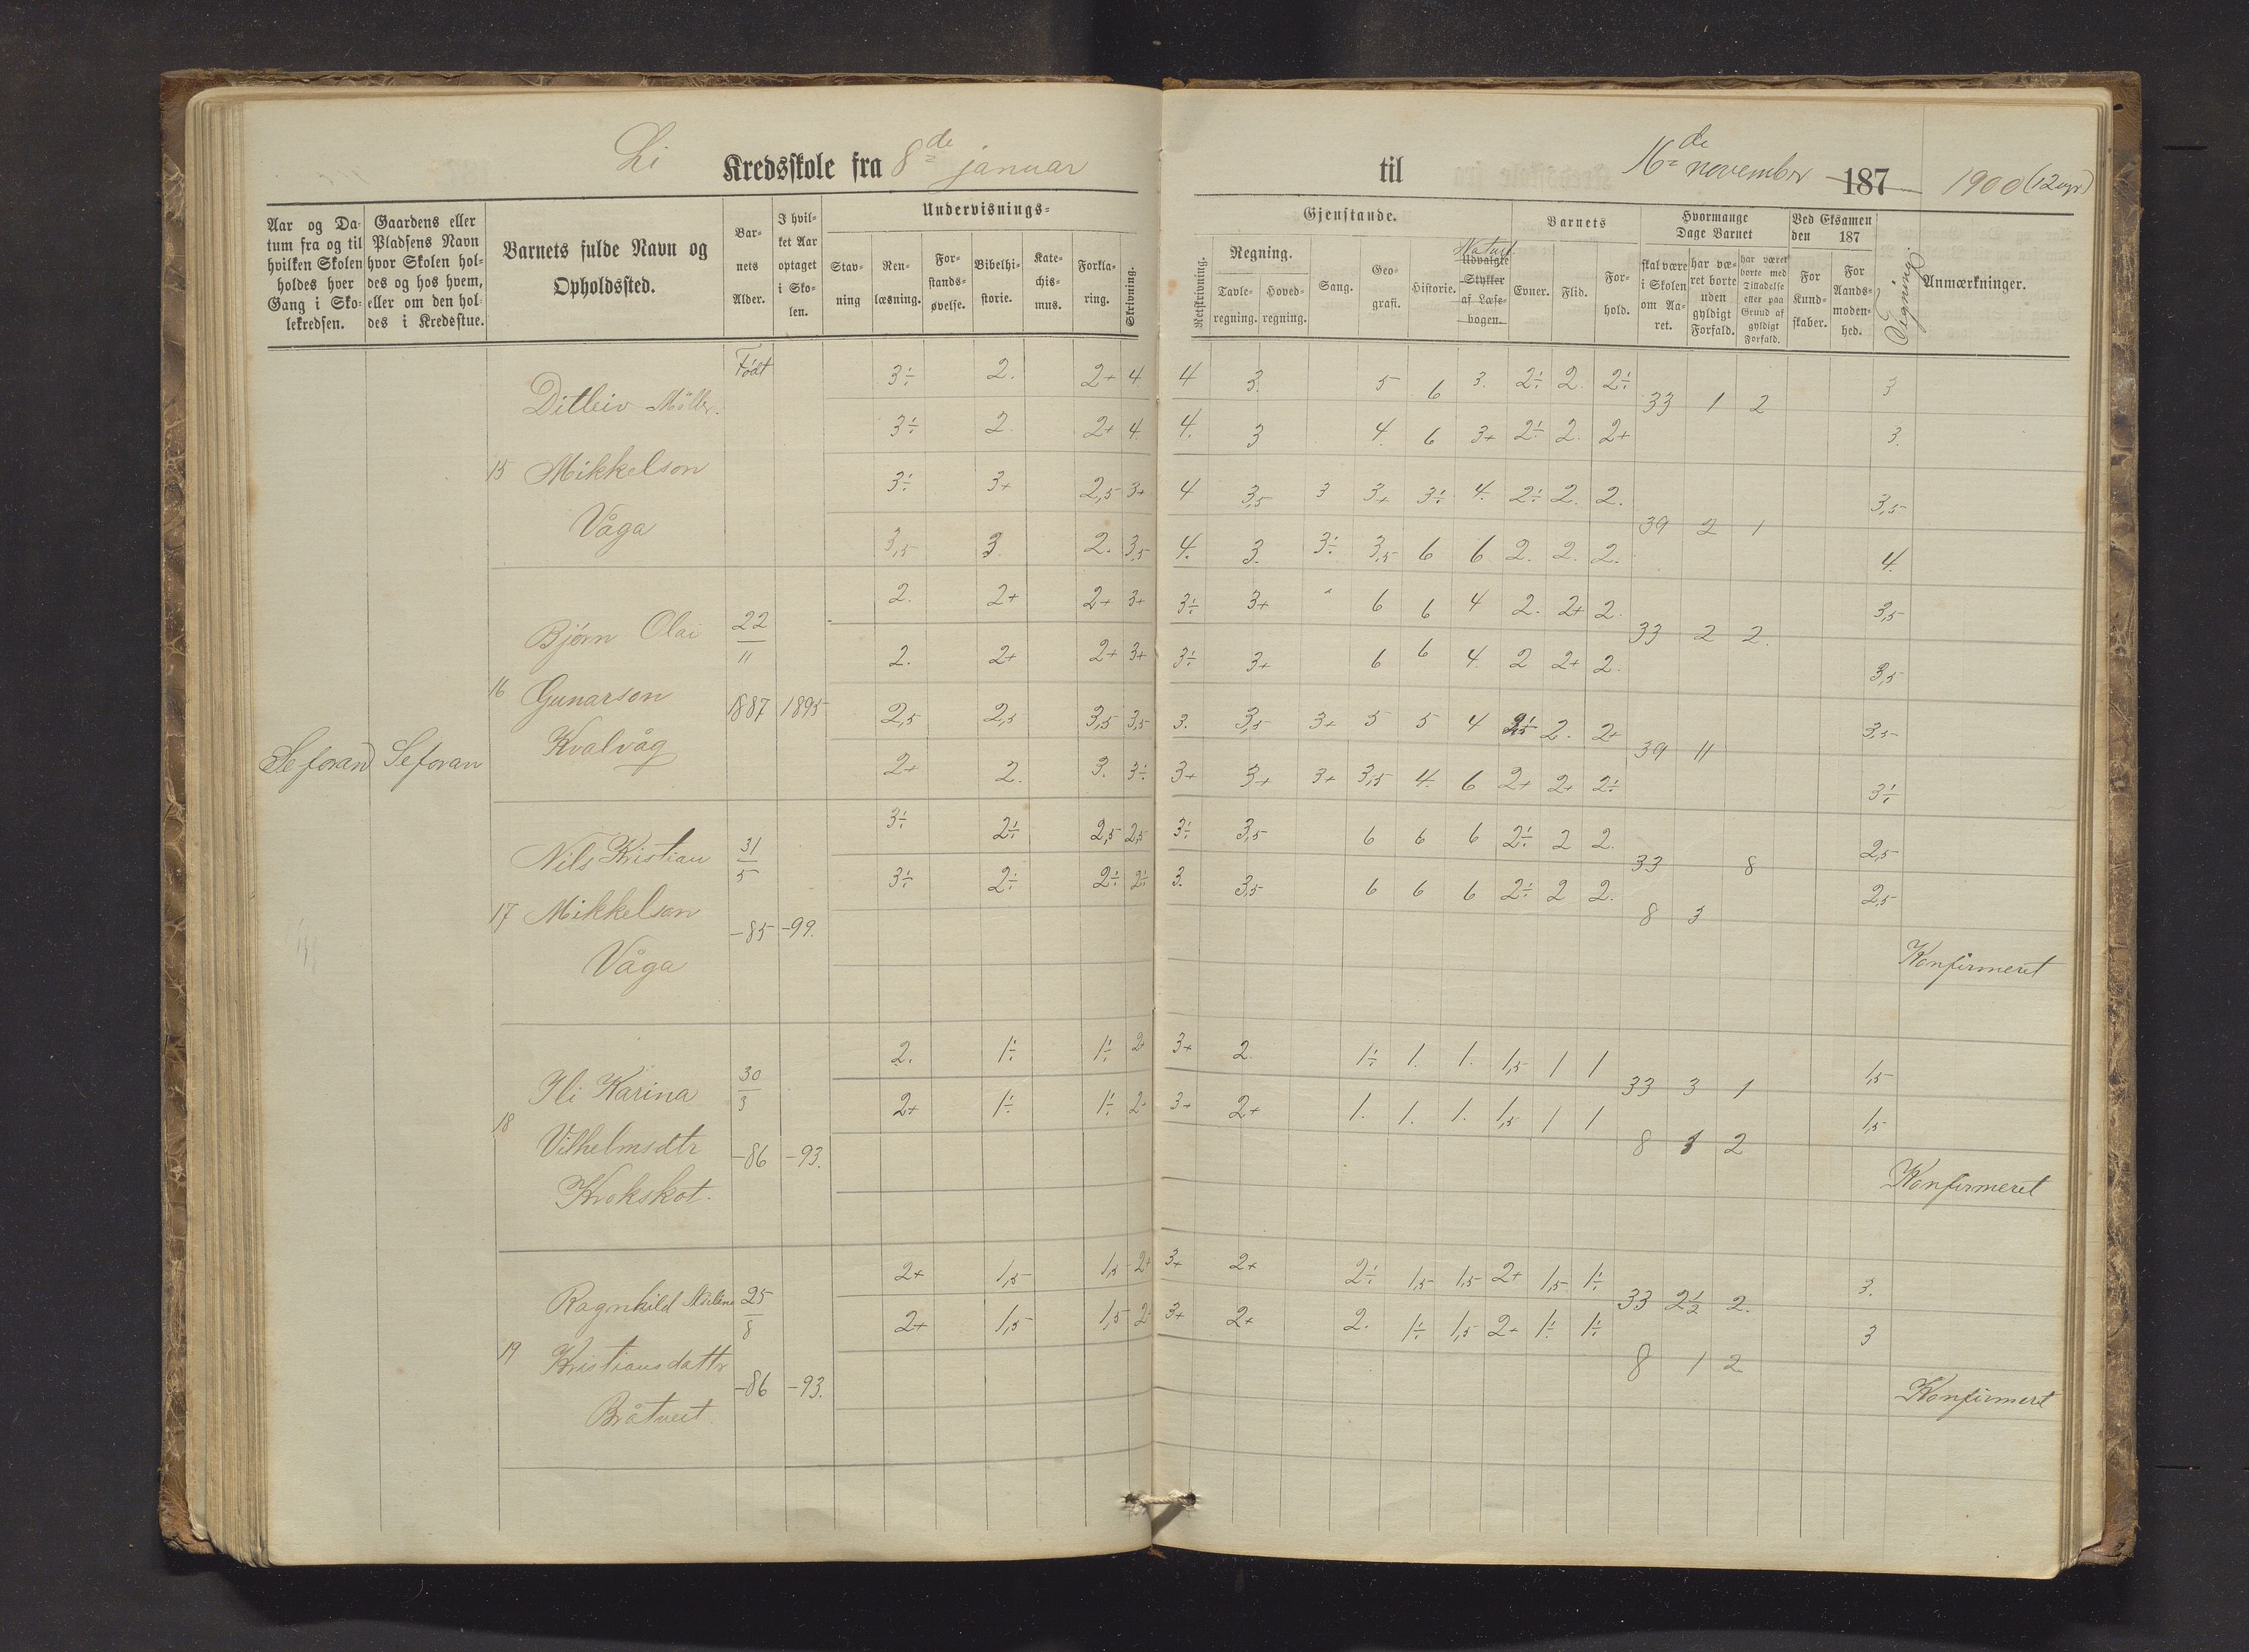 Li Kredsskole fra 8de januar til 16de november 187 1900 (12 uger)
Aar og Datum fra og til hvilken Skolen holdes hver Gang i Skolekredsen.
Gaardens eller Pladsens Navn hvor Skolen holdes og hos hvem, eller om den holdes i Kredsstue.
Barnets fulde Navn og Opholdssted.
Barnets Alder.
I hvilket Aar optaget i Skolen.
Undervisnings-
Stavning
Renlæsning.
Forstandsøvelse.
Bibelhistorie.
Katechismus.
Forklaring.
Skrivning.
Gjenstande.
Retskrivning.
Regning.
Tavleregning.
Hovedregning.
Sang.
Geografi.
Historie.
Naturf.
Udvalgte Stykker af Læsebogen.
Barnets
Evner.
Flid.
Forhold.
Hvormange Dage Barnet
skal være i Skolen om Aaret.
har været borte uden gyldigt Forfald.
har været borte med Tilladelse eller paa Grund af gyldigt Forfald.
Ved Eksamen den 187
For Kundskaber.
For Aandsmodenhed.
Tegning
Anmærkninger.
Se foran Se foran
Født
15 Ditleiv Möller.
Mikkelson
Våga
3÷ 2. 2+ 4 4 3. 5 6 3. 2÷ 2. 2÷ 33 1 2 3
3÷ 2. 2+ 4. 4. 3 4. 6 3+ 2÷ 2. 2+ 3.
3÷ 3+ 2,5 3+ 4 3,5 3 3+ 3÷ 4. 2÷ 2. 2. 39 2 1 3,5
3,5 3. 2. 3,5 4. 3. 3÷ 3,5 6 6 2. 2. 2. 4.
16 Bjørn Olai
Gunarson
Kvalvåg
22/11 1887 1895
2. 2+ 2+ 3+ 3÷ 3+ 6 6 4 2. 2+ 2. 33 2 2. 3,5
2. 2+ 2+ 3+ 3÷ 3+ 6 6 4. 2 2+ 2. 3,5
2,5 2,5 3,5 3,5 3. 3,5 3+ 5 5 4 2. 2+ 39 11 3,5
2+ 2. 3. 3÷ 3+ 3+ 3+ 3,5 4. 6 2+ 2+ 2÷ 3÷
17 Nils Kristian
Mikkelson
Våga
31/5 -85 -99.
3÷ 2÷ 2,5 2,5 3÷ 3,5 6 6 6 2÷ 2 2. 33 8 2,5
3÷ 2÷ 2÷ 2÷ 3. 3,5 6 6 6 2÷ 2 2. 8 3 2,5
Konfirmeret
18 Ili Karina
Vilhelmsdtr
Krokskot.
30/3 -86 -93.
2. 1÷ 1÷ 2+ 3+ 2. 1÷ 1. 1. 1,5 1 1 33 3 1 1,5
2+ 1÷ 1÷ 2+ 3+ 2+ 1. 1. 1. 1,5 1 1 8 2 1,5
Konfirmeret
19 Ragnhild
Kristiansdattr
Bråtveit
25/8 -86 -93.
2+ 1,5 1,5 2+ 3+ 2+ 2÷ 1,5 1,5 2+ 1,5 1÷ 33 2½ 2. 3.
2+ 1,5 1,5 2+ 3+ 2+ 2. 1÷ 1,5 2+ 1÷ 1÷ 8 1 2 3
Konfirmeret